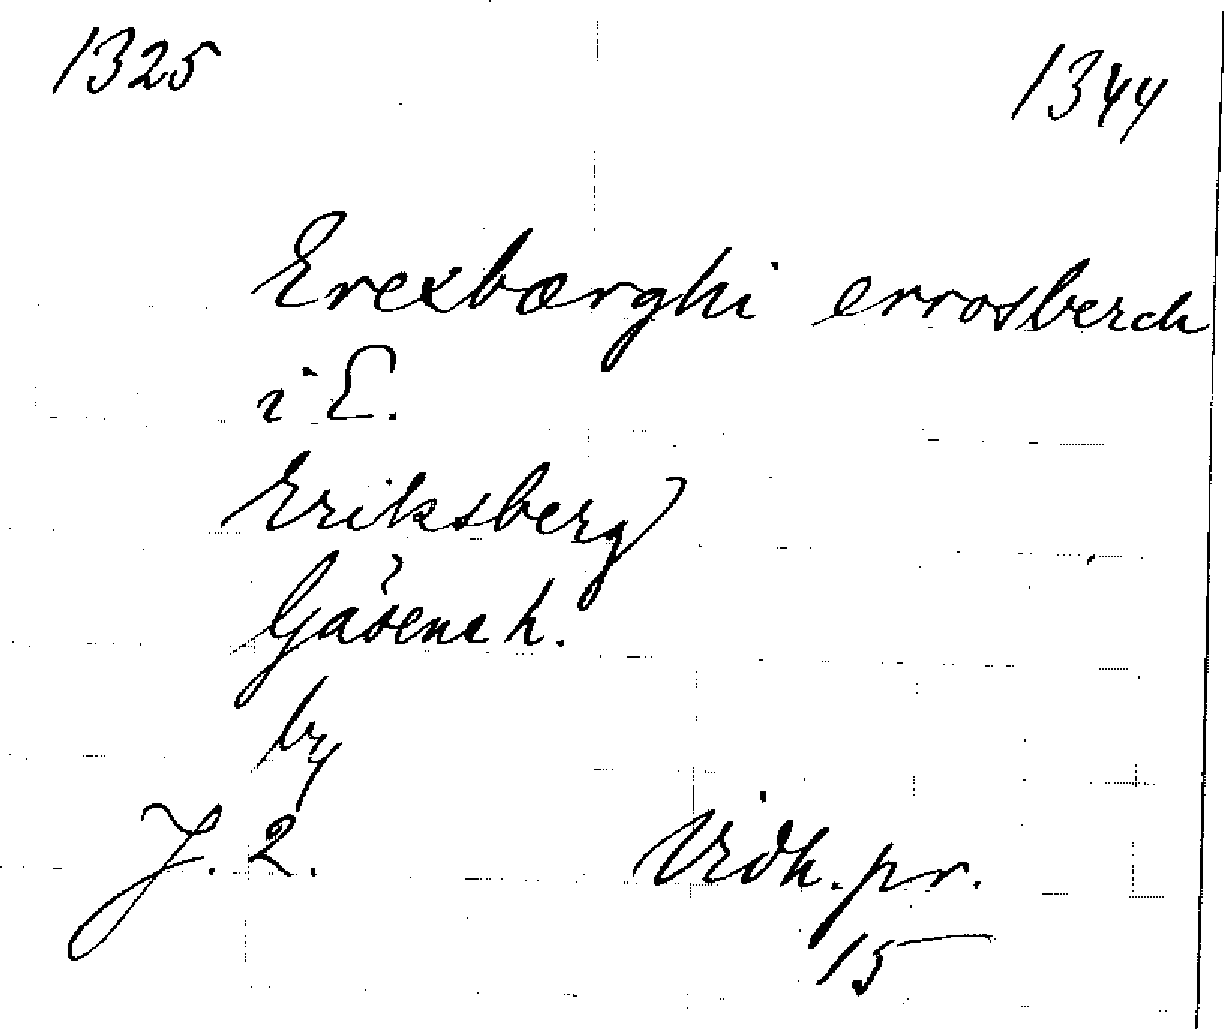 1325 1344
Erexbærghi errosberch
i E.
Eriksberg
Gäsene h.
by
J. 2. Vidh. pr.
15